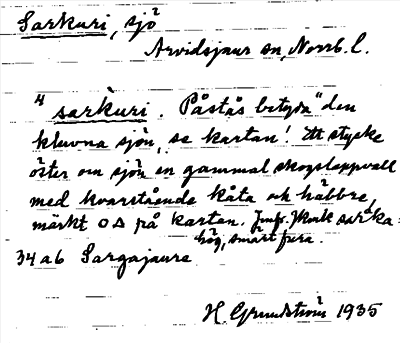 Sarkuri, sjö
Arvidsjaur sn, Norrb. l.
4 sarkuri. Påstås betyda "den
kluvna sjön, se kartan! Ett stycke
öster om sjön en gammal skogslappvall
med kvarstående kåta och häbbre,
märkt O Δ på kartan. Jmf. Jkvk sarka:
hög, smärt fura.
34 a 6 Sargajaure
H. Grundström 1935